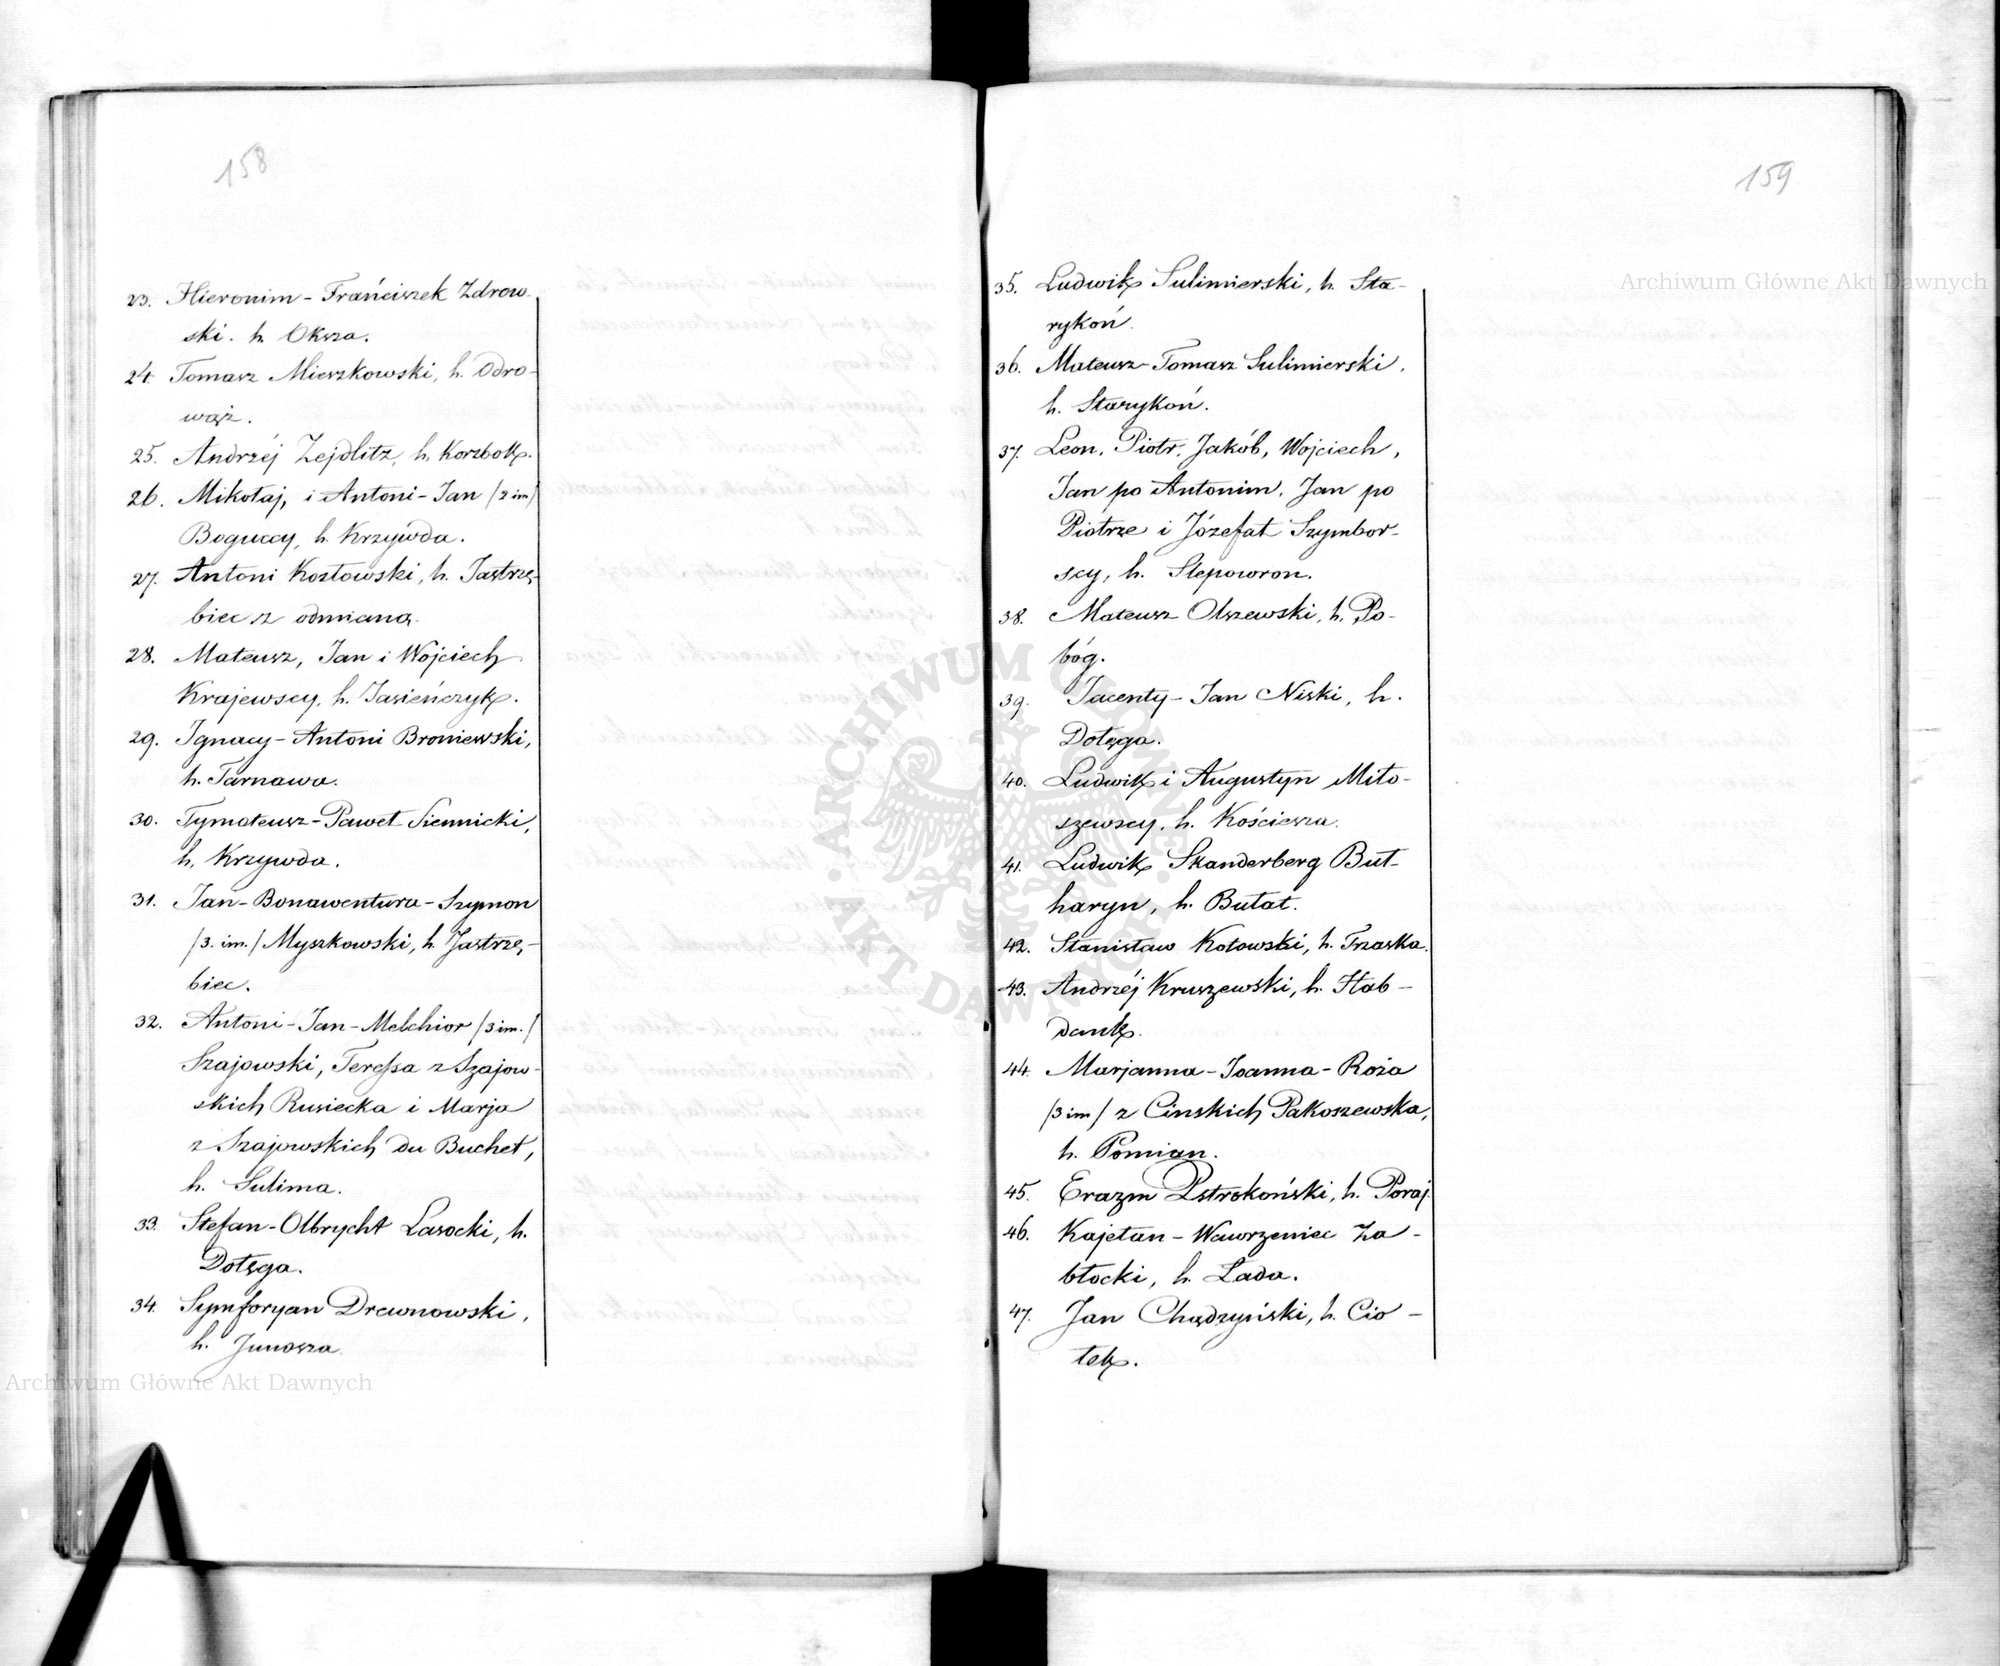 158
23. Hieronim - Frańciszek Zdrow-
ski. h. Oksza.
24. Tomasz Mieszkowski, h. Odro-
wąż.
25. Andrzéj Zejdlitz, h. Korzbok.
26. Mikołaj, i Antoni - Jan /2 im/
Boguccy, h. Krzywda.
27. Antoni Kozłowski, h. Jastrzę-
biec z odmianą.
28. Mateusz, Jan i Wojciech
Krajewscy, h. Jasieńczyk.
29. Ignacy - Antoni Broniewski,
h. Tarnawa.
30. Tymoteusz - Paweł Siennicki,
h. Krzywda.
31. Jan - Bonawentura - Szymon
/3. im./ Myszkowski, h. Jastrzę-
biec.
32. Antoni - Jan - Melchior /3 im./
Szajowski, Teressa z Szajow-
skich Rusiecka i Marja
z Szajowskich du Buchet,
h. Sulima.
33. Stefan - Olbrycht Lasocki, h.
Dołęga.
34. Symforyan Drewnowski,
h. Junosza.
Archiwum Główne Akt Dawnych
159
Archiwum Główne Akt Dawnych
35. Ludwik Sulimierski, h. Sta-
rykoń.
36. Mateusz - Tomasz Sulimierski,
h. Starykoń.
37. Leon, Piotr, Jakób, Wojciech,
Jan po Antonim, Jan po
Piotrze i Józefat Szymbor-
scy, h. Slepowron.
38. Mateusz Olszewski, h. Po-
bóg.
39. Jacenty - Jan Niski, h.
Dołęga.
40. Ludwik i Augustyn Miło-
szewscy, h. Kościesza.
41. Ludwik Skanderberg But-
haryn, h. Bułat.
42. Stanisław Kotowski, h. Trzaska.
43. Andrzéj Kruszewski, h. Hab-
dank.
44. Marjanna - Joanna - Roża
/3 im/ z Cinskich Pakoszewska,
h. Pomian.
45. Erazm Pstrokoński, h. Poraj.
46. Kajetan - Wawrzeniec Za-
błocki, h. Łada.
47. Jan Chądzyński, h. Cio-
łek.
ARCHIWUM GŁÓWNE
AKT DAWNYCH